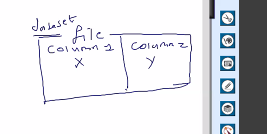 dataset
file
column 1 column 2
X Y